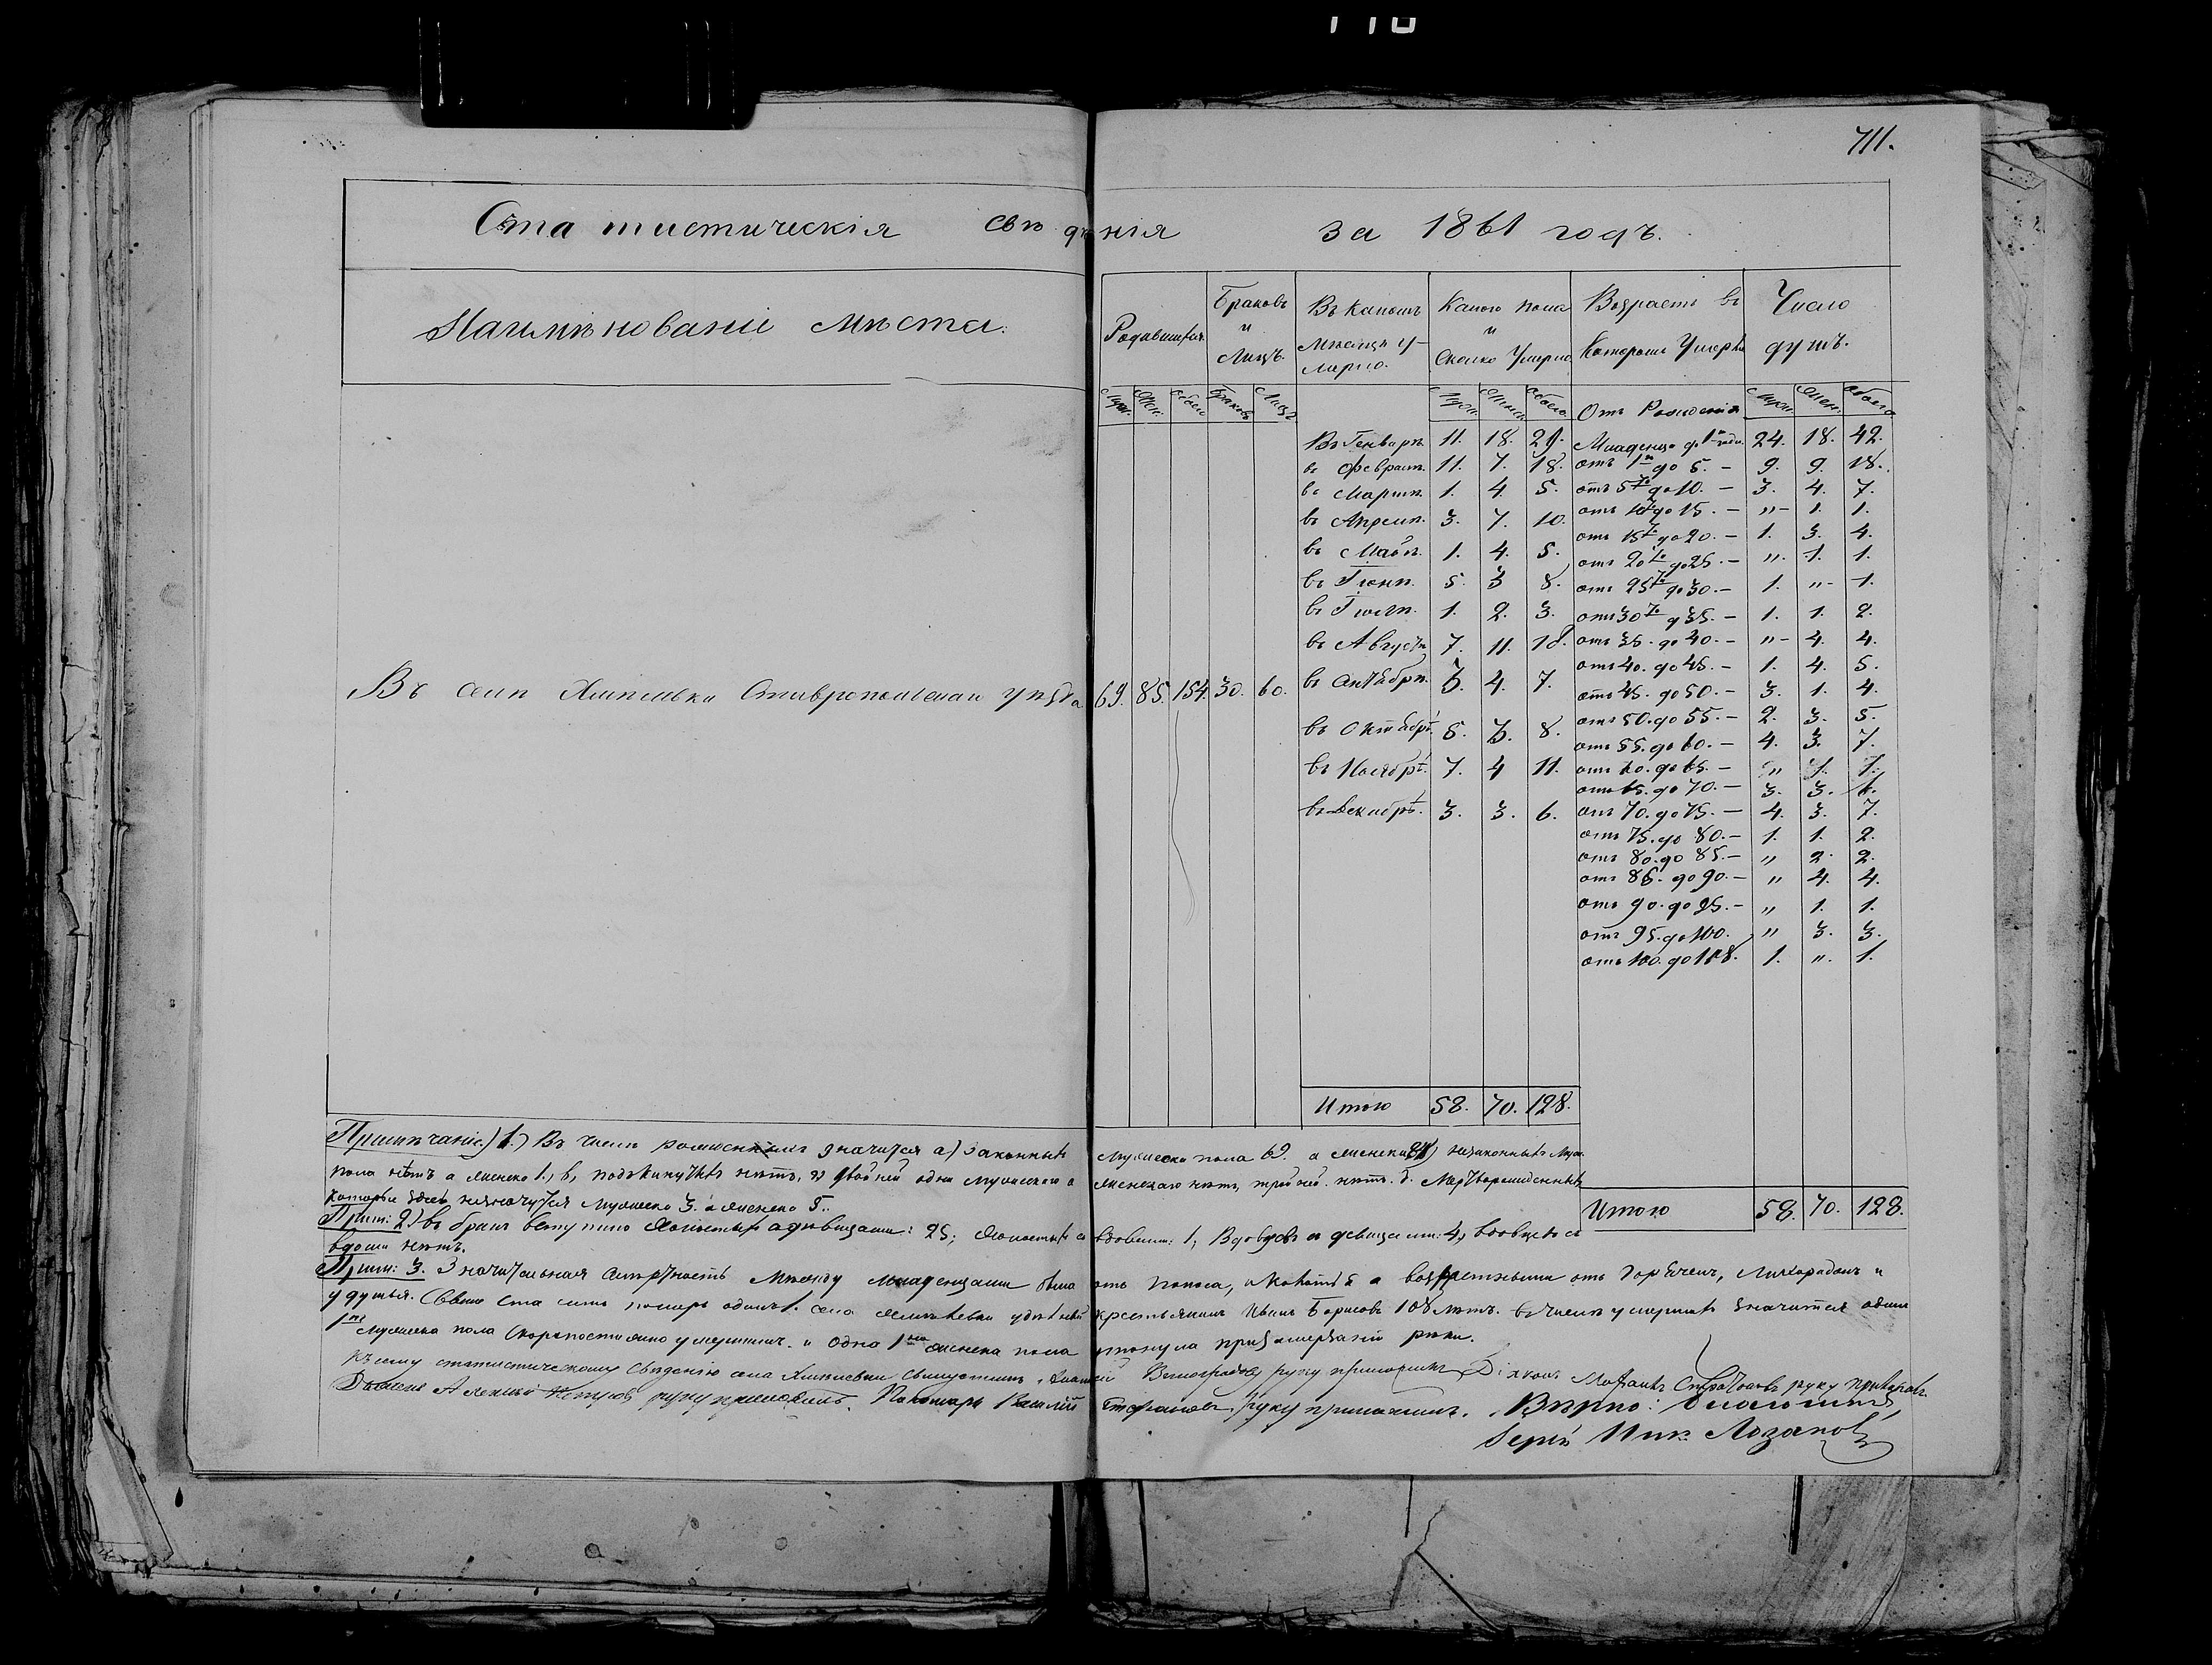 711.
Статистическія свѣдѣнія за 1861 годъ.
Наимѣнованіе мѣста.
Родившихся Браковъ и Лицъ. Въ какомъ Мѣсяцѣ умерло. Какого пола и сколько Умерло Возрастъ въ которомъ Умерли Число душъ.
Муж. Жен. Обоего Браковъ Лицъ Муж. Женск. Обоего Отъ Рожденія Муж. Жен. Обоего
Въ селѣ Хмѣлевки Ставропольскаго уѣзда 69. 85. 154. 30. 60.
Въ Генварѣ. 11. 18. 29.
въ Февралѣ. 11. 7. 18.
въ Мартѣ. 1. 4. 5.
въ Апрелѣ. 3. 7. 10.
въ Маѣ. 1. 4. 5.
въ Іюнѣ. 5. 3 8.
въ Іюлѣ. 1. 2. 3.
въ Августѣ 7. 11. 18.
въ Сентябрѣ. 3. 4. 7.
въ Октябрѣ. 5. 3. 8.
въ Ноябрѣ. 7. 4 11.
въ Декабрѣ. 3. 3. 6.
Итого 58. 70. 128.
Младенцо до 1го года. 24. 18. 42.
отъ 1го до 5. — 9. 9. 18.
отъ 5ти до 10. — 3. 4. 7.
отъ 10ти до 15. — „ — 1. 1.
отъ 15ти до 20. — 1. 3. 4.
отъ 20ти до 25. — „. 1. 1.
отъ 25ти до 30. — 1. „ — 1.
отъ 30ти д 35. — 1. 1. 2.
отъ 35. до 40. — „ — 4. 4.
отъ 40. до 45. — 1. 4. 5.
отъ 45. до 50. — 3. 1. 4.
отъ 50. до 55. — 2. 3. 5.
отъ 55. до 60. — 4. 3. 7.
отъ 60. до 65. — „ 1. 1.
отъ 65. до 70. — 3. 3. 6.
отъ 70. до 75. — 4. 3. 7.
отъ 75. до 80. — 1. 1. 2.
отъ 80. до 85. — „ 2. 2.
отъ 85. до 90. — „ 4. 4.
отъ 90. до 95. — „ 1. 1.
отъ 95. до 100. „ 3. 3.
отъ 100. до 108. 1. „. 1.
Итого 58. 70. 128.
Примѣчаніе) 1.) Въ числѣ рожденныхъ значится а) законныхъ мужеска пола 69. а женска незаконныхъ Муж.
пола нѣтъ а женско 1., в, подкинутыхъ нѣтъ, г) двойней одни мужескаго а женскаго нѣтъ, тройней. нѣтъ. д. Мертворожденныхъ
которые здесь незначутся мужеско 3. а женско 5.
Прим: 2) въ бракъ вступило Холостыхъ съ дѣвицами: 25; Холостыхъ съ вдовами: 1; Вдовцовъ съ девицами: 4, вдовцовъ съ
вдовами нѣтъ.
Прим: 3. Значительная смертность между младенцами была отъ поноса, а возрастными отъ горячекъ, лихорадокъ и
удушья. Свыше ста летъ померъ одинъ 1. села Хмѣлевки удѣльный крестьянинъ Иванъ Борисовъ 108 лѣтъ. въ числѣ умершихъ значится одинъ
1нъ мужеска пола скоропостижно умершихъ. и одна 1на женска пола утонула при замерзаніи рѣки.
Къ сему статистическому Свѣденію села Хмѣлевки Священникъ Виноградовъ руку приложилъ Діаконъ руку приложилъ.
Дьячекъ Алексѣй руку приложилъ. Пономарь Василій Стефановъ руку приложилъ. Вѣрно: Благочинный
Іерей Ник. Лозановъ